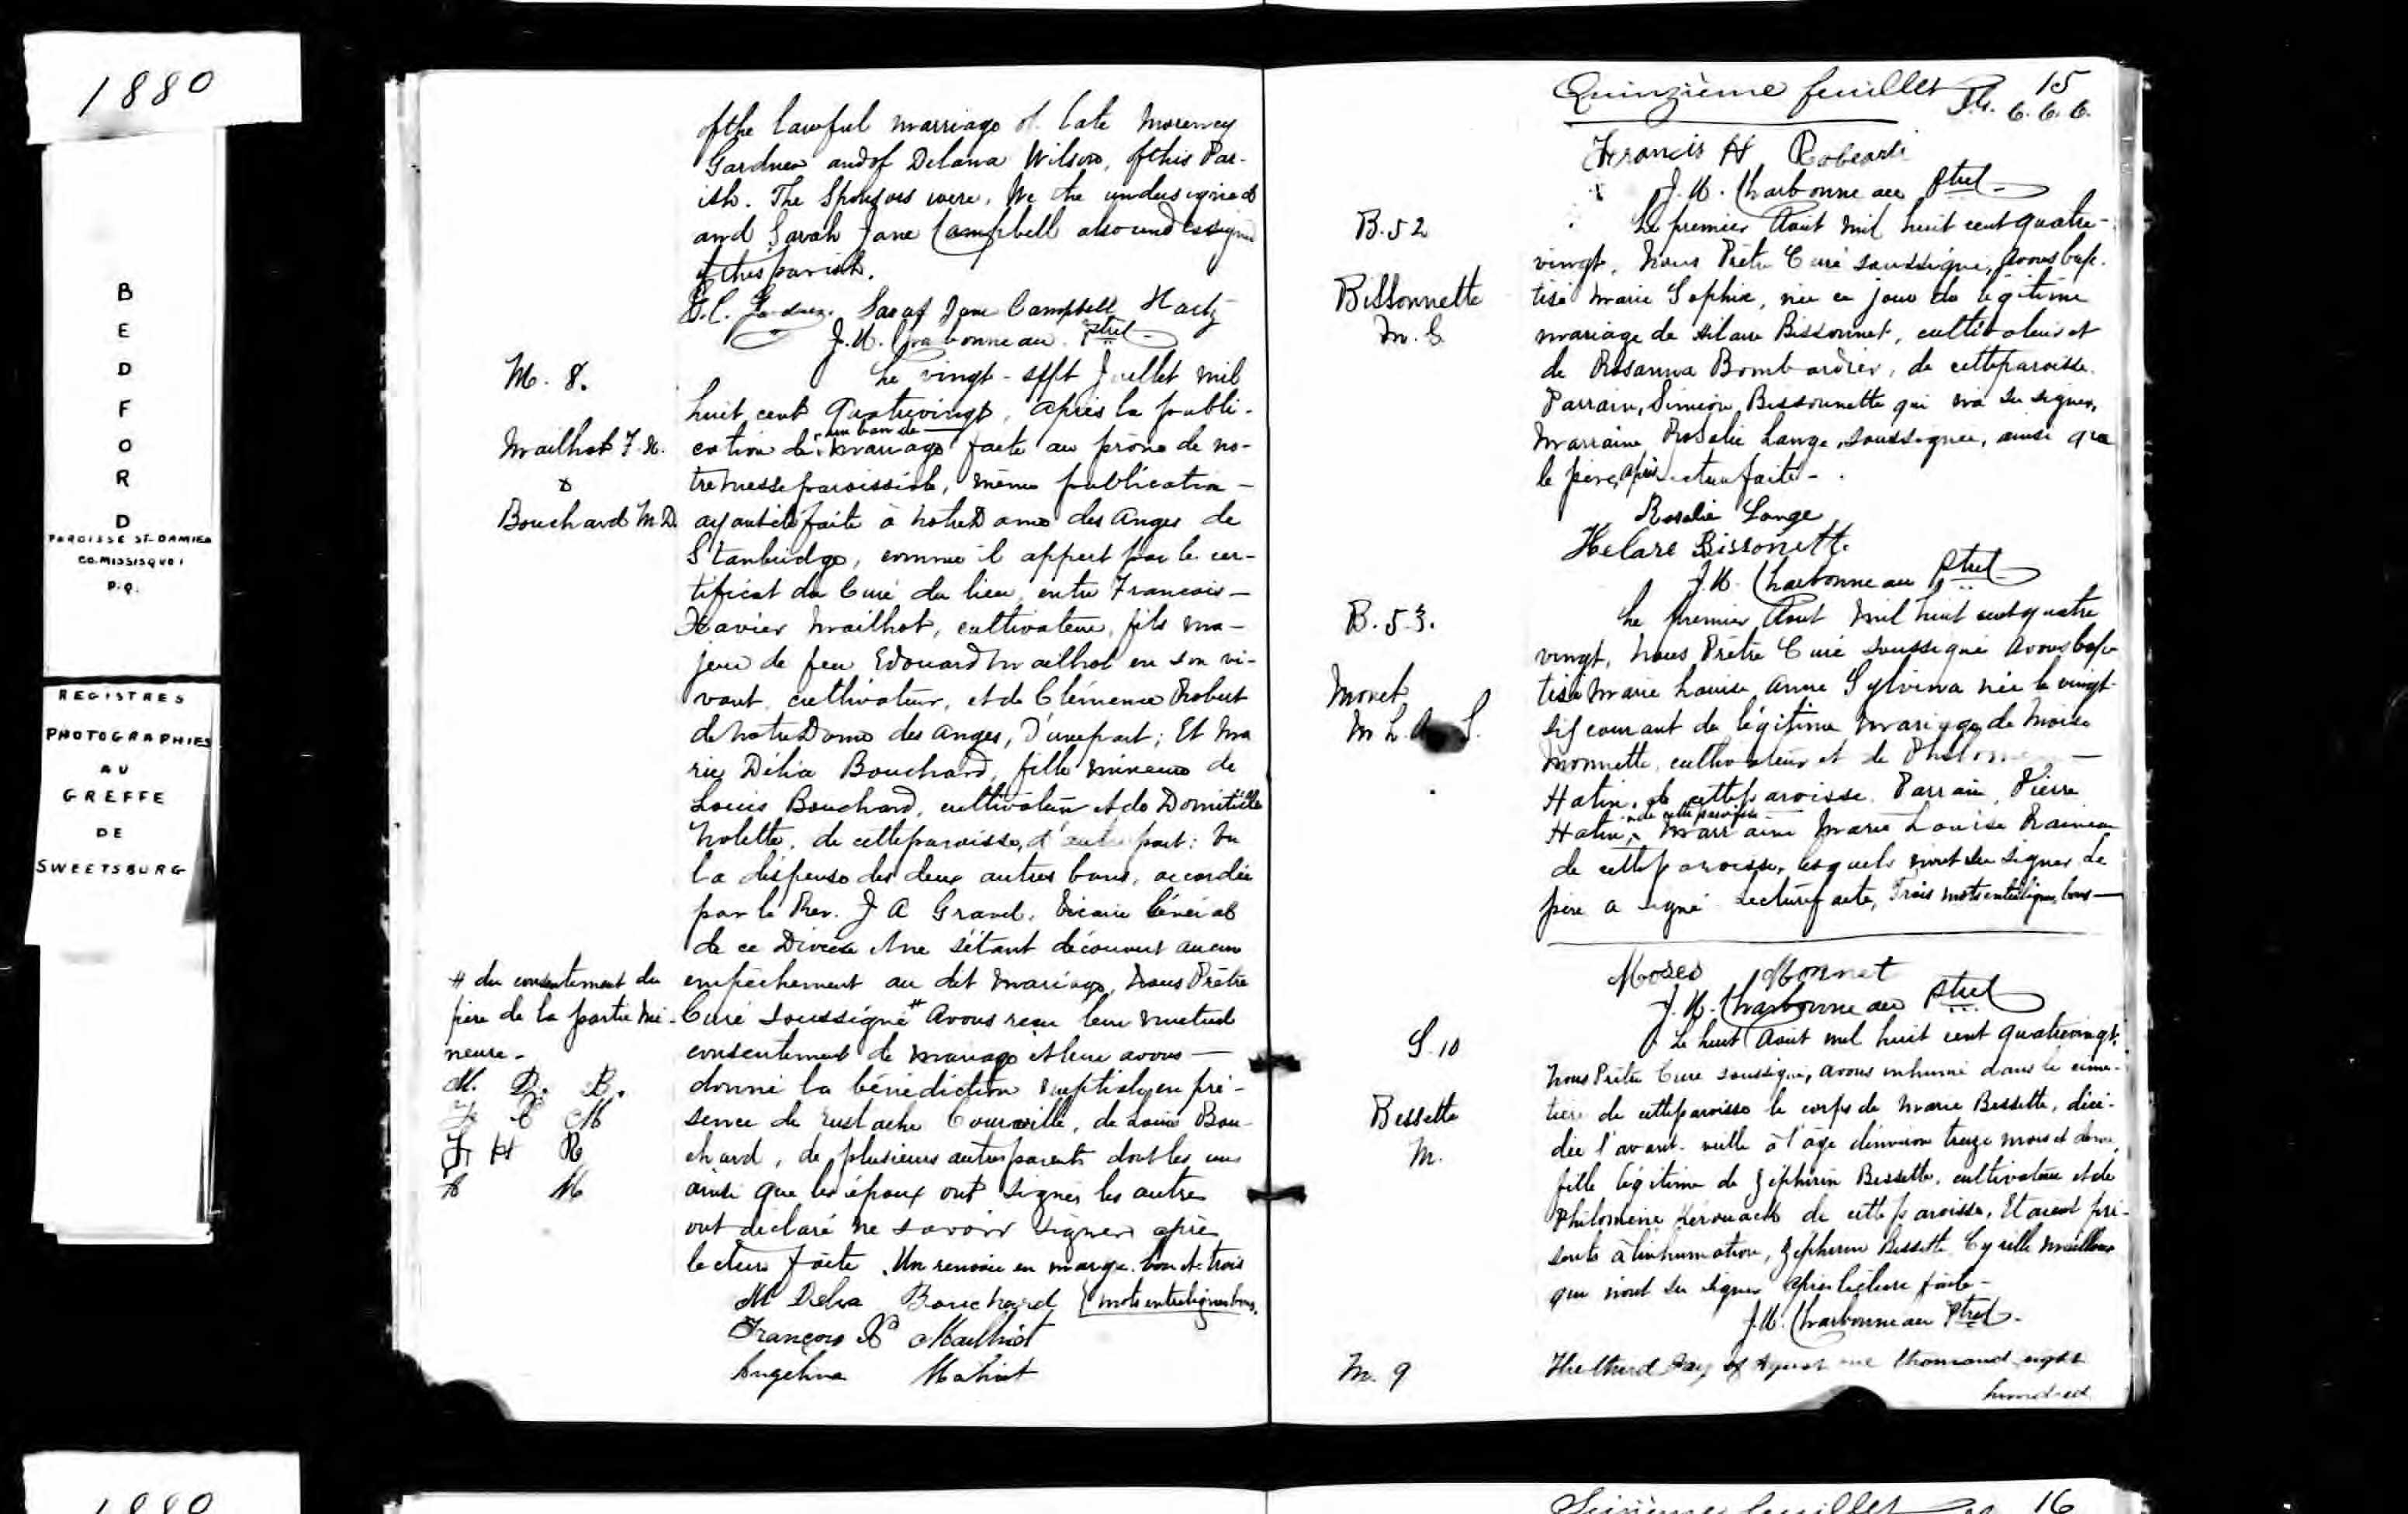 1880
BEDFORD
PAROISSE ST-DAMIEN
CO. MISSISQUOI
P.Q.
REGISTRES
PHOTOGRAPHIES
AU
GREFFE
DE
SWEETSBURG
of the lawful marriage of late
Gardner and of Delana Wilson, of this Par-
ish. The Sponsors were, We the undersigned
and Sarah Jane Campbell also undersigned
of this parish.
Sarah Jane Campbell
J.U. Charbonneau Ptre
M. 8.
Mailhot F.X.
&
Bouchard M.D.
Le vingt-sept Juillet mil
huit cent Quatrevingt, après la publi-
cation d'un ban de mariage faite au prône de no-
tre messe paroissiale, même publication
ayant été faite à Notre Dame des Anges de
Stanbridge, comme il appert par le cer-
tificat du Curé du lieu, entre Francois-
Xavier Mailhot, cultivateur, fils ma-
jeur de feu Edouard Mailhot en son vi-
vant, cultivateur, et de Clémence Robert
de Notre Dame des Anges, d'une part; Et Ma
rie Délia Bouchard, fille mineure de
Louis Bouchard, cultivateur et de Domitille
Nolette, de cette paroisse, d'autre part: Vu
la dispense des deux autres bans, accordée
par le Rev. J A Gravel, Vicaire Général
de ce Diocèse et ne s'étant découvert aucun
empêchement au dit mariage, Nous Prêtre
Curé soussigné # Avons reçu leur mutuel
consentement de mariage et leur avons
donné la bénédiction nuptiale, en pré-
sence de Eustache Courville, de Louis Bou-
chard, de plusieurs autres parents dont les uns
ainsi que les époux ont signés les autres
ont déclaré ne savoir signer après
lecture faite. Un renvoie en marge bon et trois
mots entrelignes bons.
# du consentement du
père de la partie mi-
neure-
M. D. B.
F X M
F H R
A M
M Delia Bouchard
François X Mailhiot
Angelina Mahiot
Quinzième feuillet 15
Francis H Robearts
J.U. Charbonneau Ptre
B.52
Bissonnette
M. S.
Le premier Aout mil huit cent quatre-
vingt, Nous Prêtre Curé soussigné, avons bap-
tisé Marie Sophie, née ce jour du légitime
mariage de Hilaire Bissonnet, cultivateur et
de Rosanna Bombardier, de cette paroisse.
Parrain, Siméon Bissonnette qui n'a su signer,
Marraine Rosalie Lange, soussignée, ainsi que
le père, après lecture faite-
Rosalie Lange
Helare Bissonett
J.U. Charbonneau Ptre
B.53.
Monet
M L. A S.
Le premier Aout mil huit cent quatre
vingt, Nous Prêtre Curé soussigné avons bap-
tisé Marie Louise Anne Sylvina née le vingt
six courant du légitime mariage de Moise
Monnette, cultivateur et de
Hatin, de cette paroisse. Parrain, Pierre
Hatin, de cette paroisse Marraine Marie Louise
de cette paroisse, lesquels n'ont su signer Le
père a signé Lecture faite, Trois mots entrelignes bons
Moses Monnet
J.U. Charbonneau Ptre
S.10
Bessette
M.
Le huit Aout mil huit cent quatrevingt.
Nous Prêtre Curé soussigné, avons inhumé dans le cime-
tière de cette paroisse le corps de Marie Bessette, décé-
dée l'avant-veille à l'âge d'environ treize mois et demi,
fille légitime de Zéphirin Bessette, cultivateur et de
Philomène Kerouack de cette paroisse, Etaient pré-
sents à l'inhumation, Zephirin Bessette, Cyrille
qui n'ont su signer après lecture faite-
J.U. Charbonneau Ptre.
M. 9
The third day of August one thousand eight
hundred
1880
Seizième feuillet 16